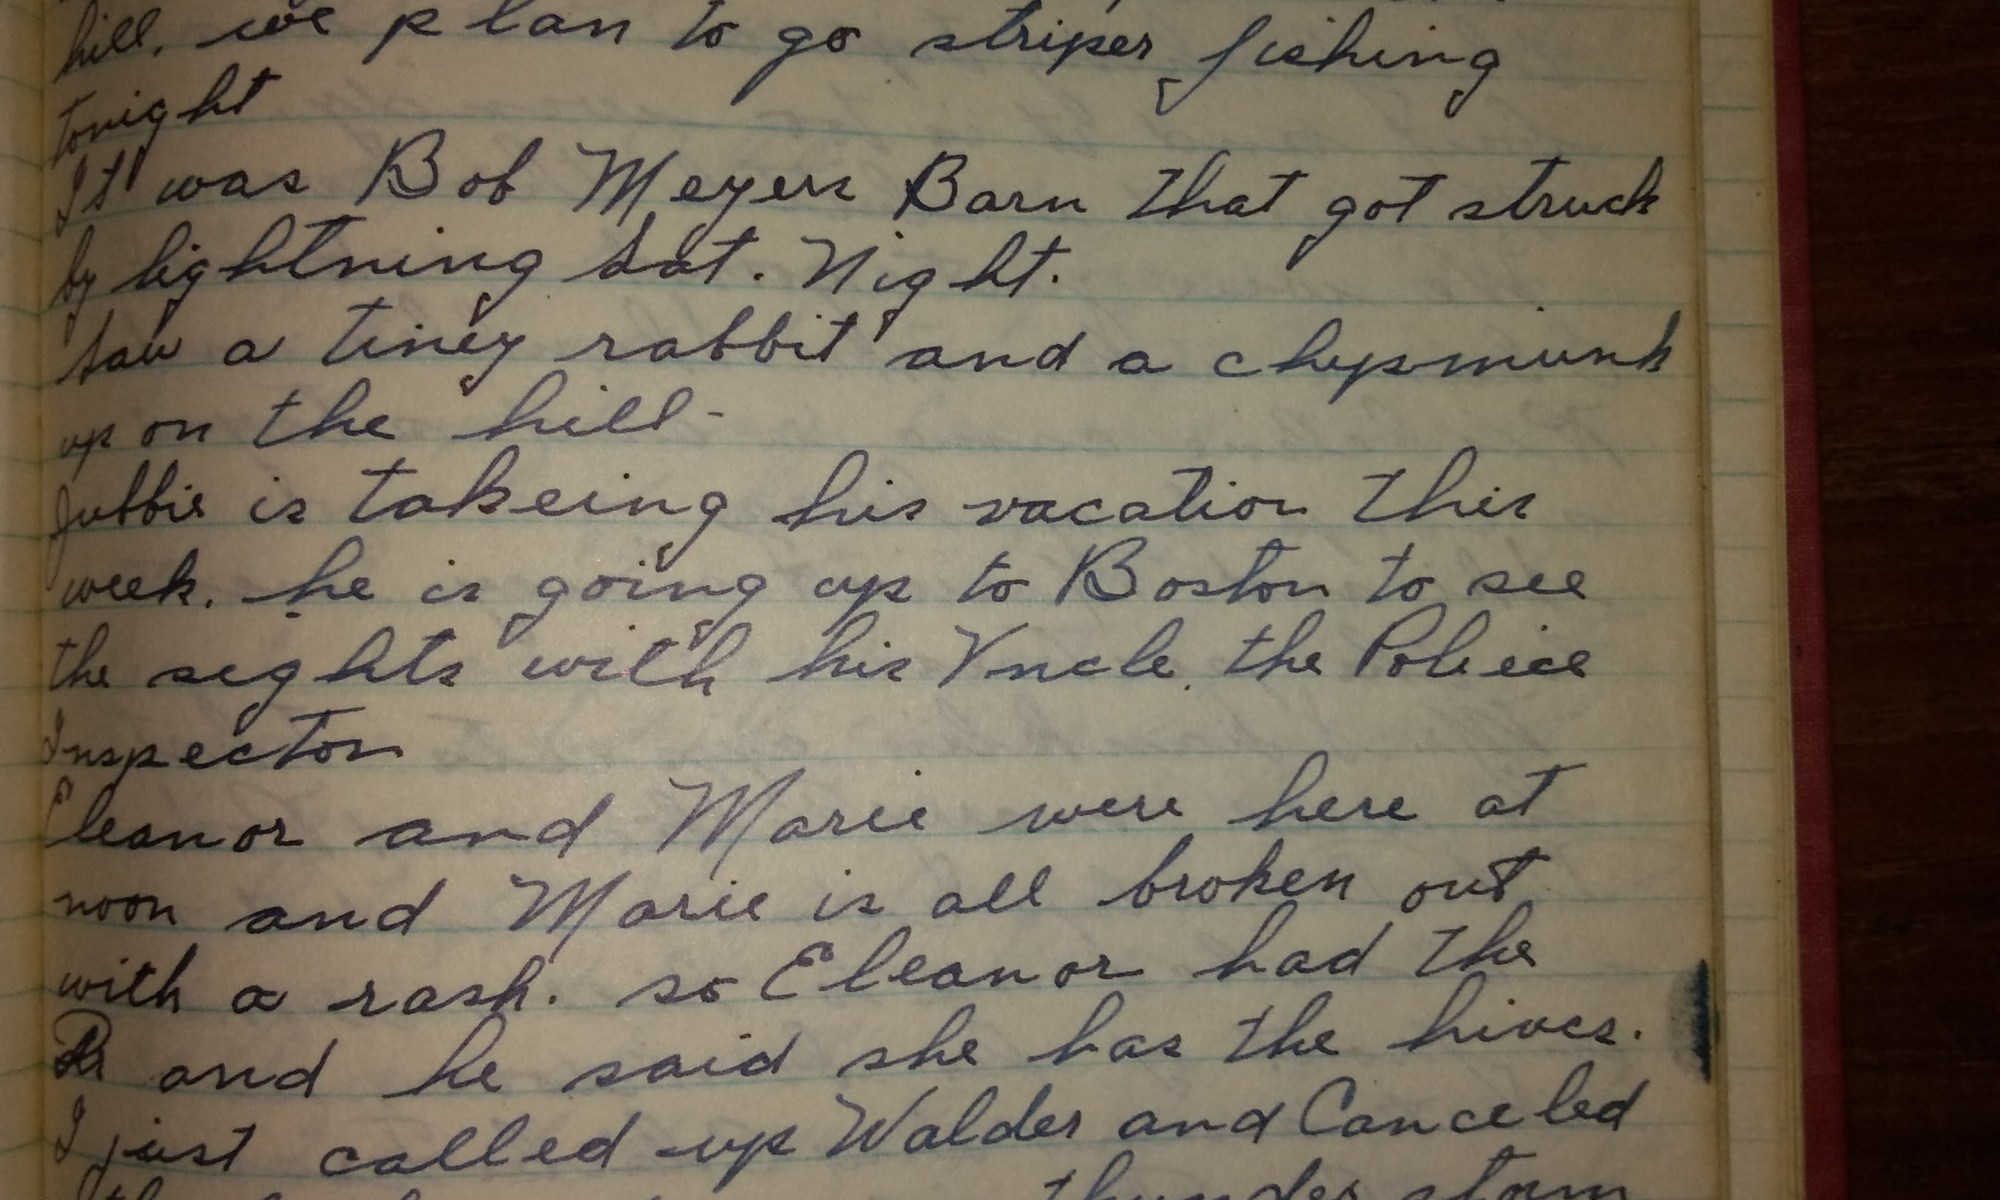 hill. we plan to go striper fishing
tonight
It was Bob Meyers Barn that got struck
by lightning Sat. Night.
Saw a tiney rabbit and a chypmunk
up on the hill-
Jubbie is takeing his vacation this
week. he is going up to Boston to see
the sights with his Yncle. the Poliece
Inspector
Eleanor and Marie were here at
noon and Marie is all broken out
with a rash. so Eleanor had the
Dr and he said she has the hives.
I just called up Walder and Canceled
thunder storm